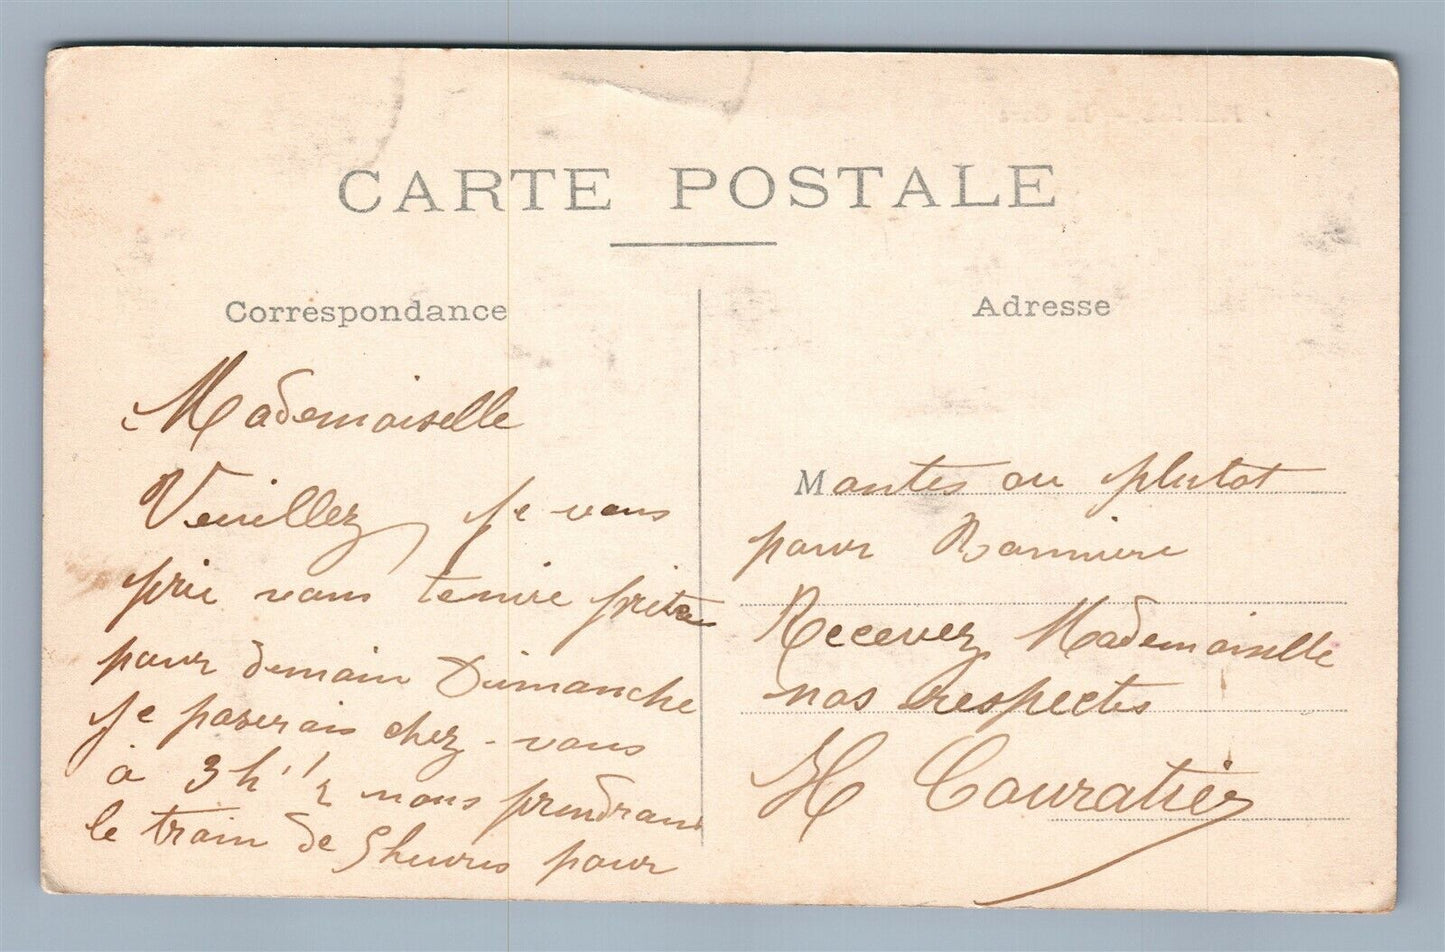 CARTE POSTALE
Correspondance
Adresse
Mademoiselle
Veuillez, je vous
prie vous tenire prête
pour demain Dimanche
je paserais chez-vous
à 3h 1/2 nous prendrans
le train de 5 heures pour
Mantes ou plutot
pour Bonniere
Recevez Mademoiselle
nos respectes
H Couratier